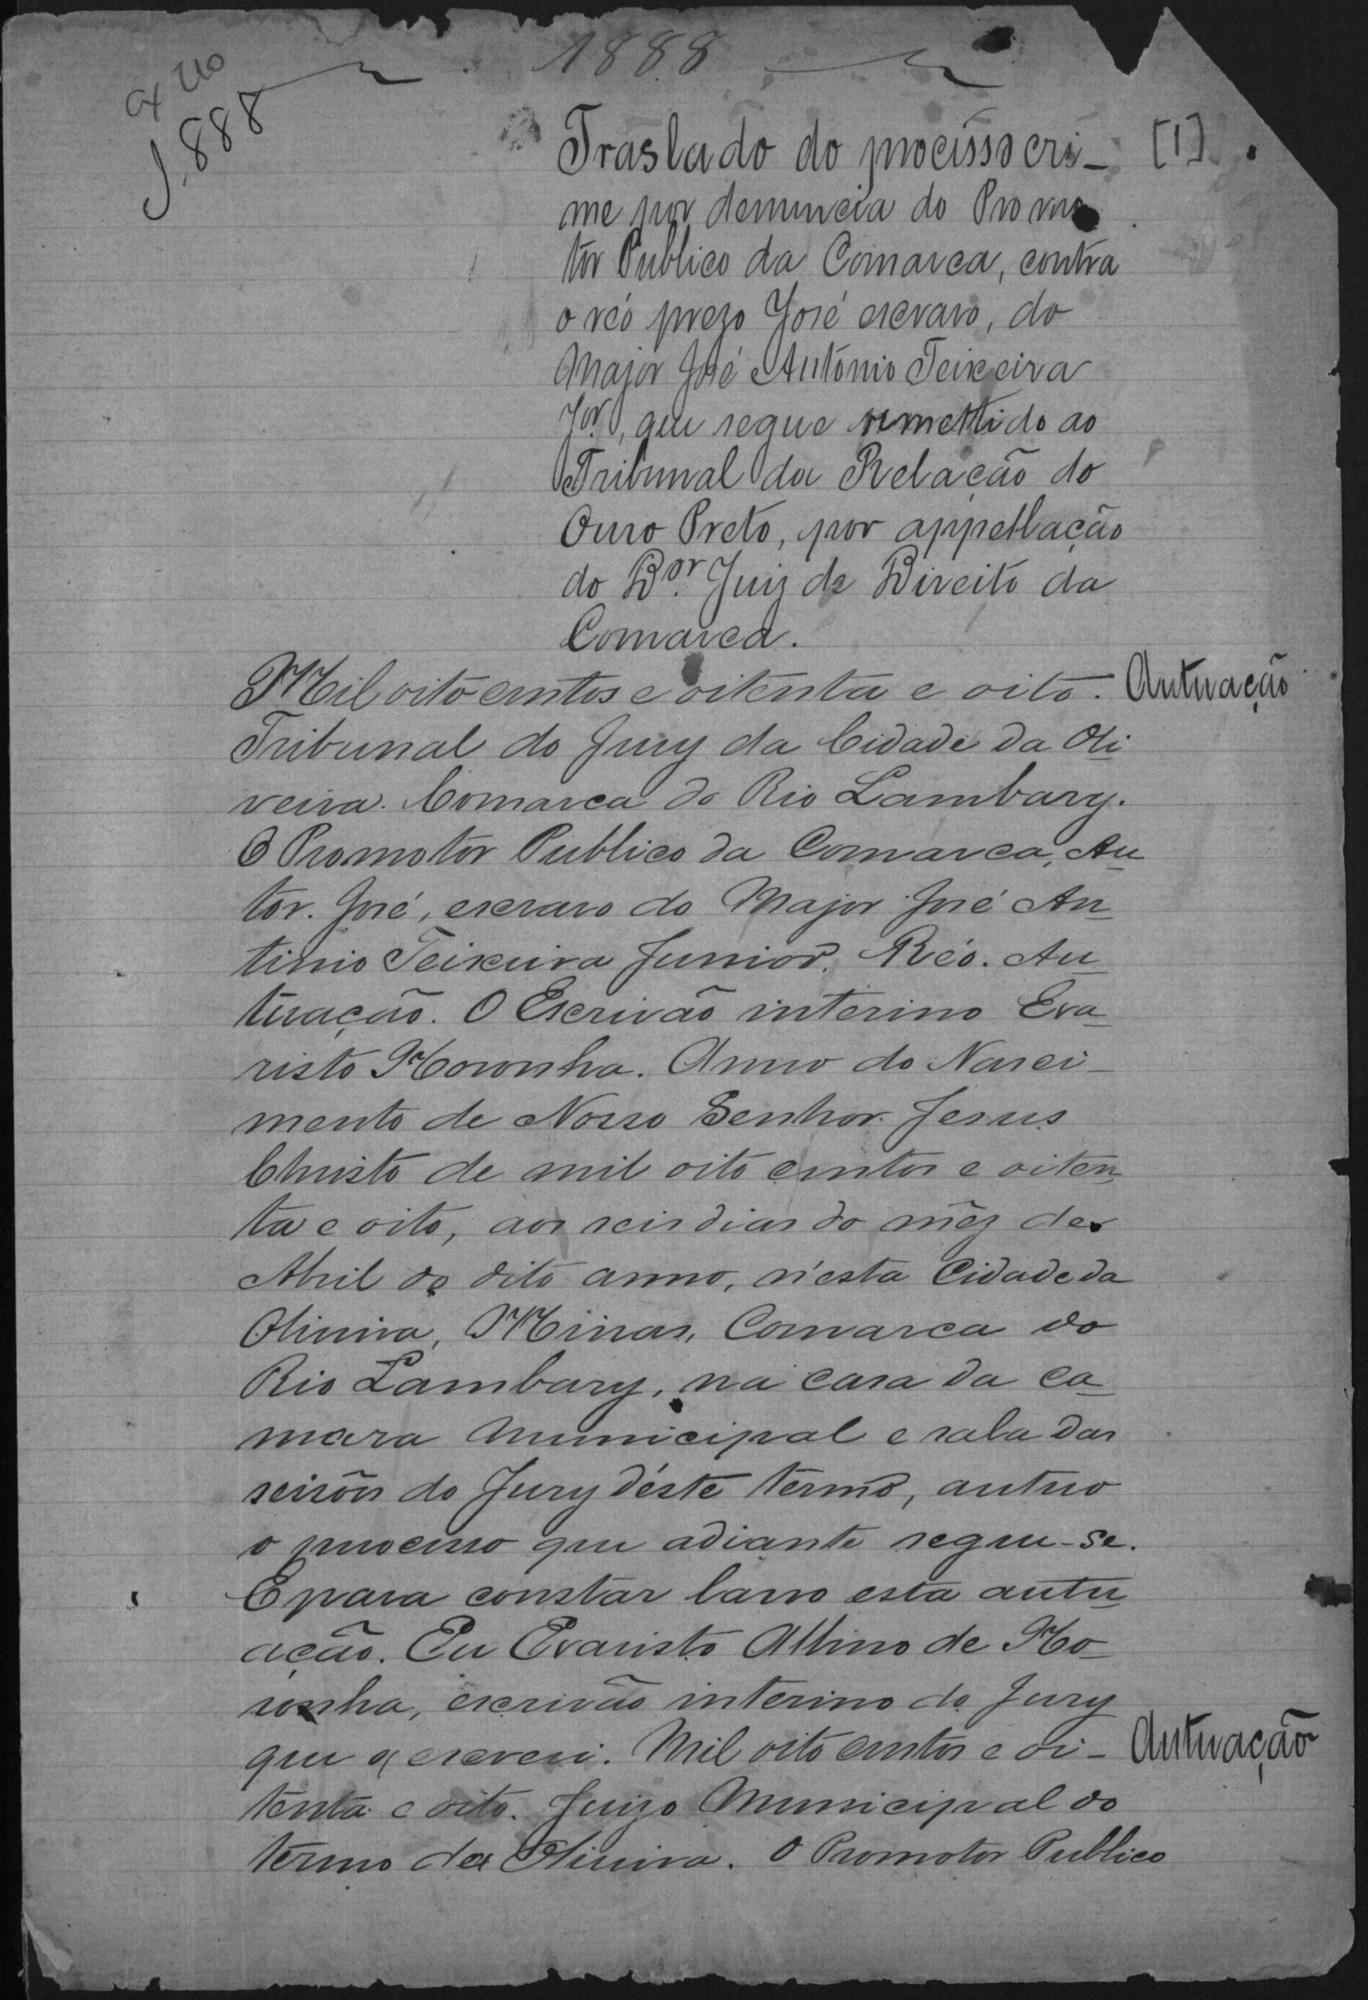 1888
J. 888
Traslado do processo cri-
[1]
me por denuncia do Promo
tor Publico da Comarca, contra
o réo prezo José escravo, do
Major José Antonio Teixeira
Jor., que segue remettido ao
Tribunal da Relação do
Ouro Preto, por appellação
do Dor. Juiz de Direito da
Comarca.
Mil oito centos e oitenta e oito.
Autuação
Tribunal do Jury da Cidade da Oli
veira. Comarca do Rio Lambary.
O Promotor Publico da Comarca, Au
tor. José, escravo do Major José An
tonio Teixeira Junior. Réo. Au
tuação. O Escrivão interino Eva-
risto Noronha. Anno do Nasci-
mento de Nosso Senhor Jesus
Christo de mil oito centos e oiten
ta e oito, aos seis dias do mêz de
Abril do dito anno, n'esta Cidade da
Oliveira, Minas, Comarca do
Rio Lambary, na casa da Ca-
mara Municipal e sala das
seisões do Jury déste termo, autuo
o processo que adiante segue-se.
E para constar lavro esta autu
ação. Eu Evaristo Albino de No-
ronha, escrivão interino do Jury
que o escrevi. Mil oito centos e oi-
Autuação
tenta e oito. Juizo Municipal do
termo da Oliveira. O Promotor Publico